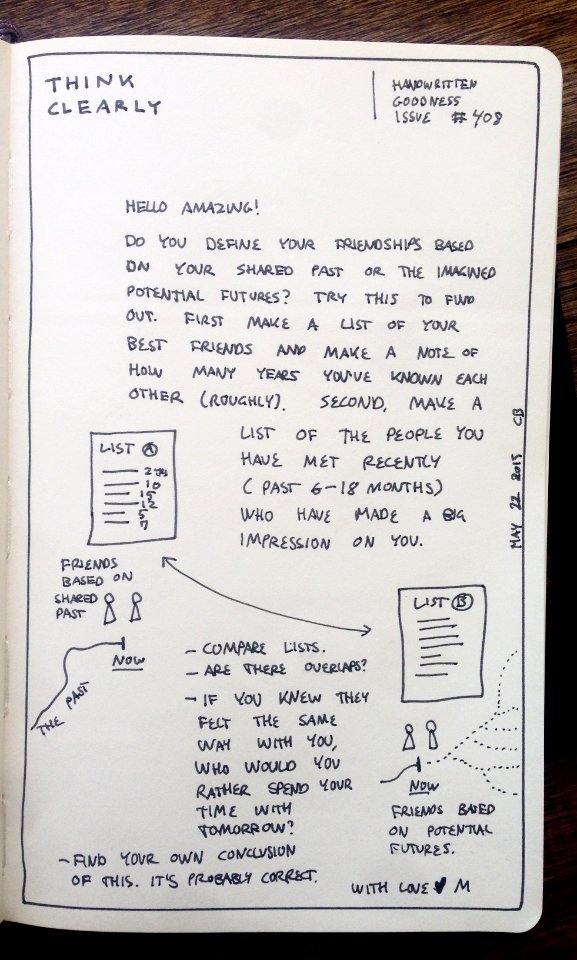 THINK
CLEARLY
HANDWRITTEN
GOODNESS
ISSUE #408
HELLO AMAZING!
DO YOU DEFINE YOUR FRIENDSHIPS BASED
ON YOUR SHARED PAST OR THE IMAGINED
POTENTIAL FUTURES? TRY THIS TO FIND
OUT. FIRST MAKE A LIST OF YOUR
BEST FRIENDS AND MAKE A NOTE OF
HOW MANY YEARS YOU'VE KNOWN EACH
OTHER (ROUGHLY). SECOND, MAKE A
LIST OF THE PEOPLE YOU
HAVE MET RECENTLY
(PAST 6-18 MONTHS)
WHO HAVE MADE A BIG
IMPRESSION ON YOU.
LIST A
2 YRS
10
15
12
5
7
FRIENDS
BASED ON
SHARED
PAST
NOW
THE PAST
MAY 22 2015 CB
LIST B
- COMPARE LISTS.
- ARE THERE OVERLAPS?
- IF YOU KNEW THEY
FELT THE SAME
WAY WITH YOU,
WHO WOULD YOU
RATHER SPEND YOUR
TIME WITH
TOMORROW?
NOW
FRIENDS BASED
ON POTENTIAL
FUTURES.
- FIND YOUR OWN CONCLUSION
OF THIS. IT'S PROBABLY CORRECT.
WITH LOVE ♥ M